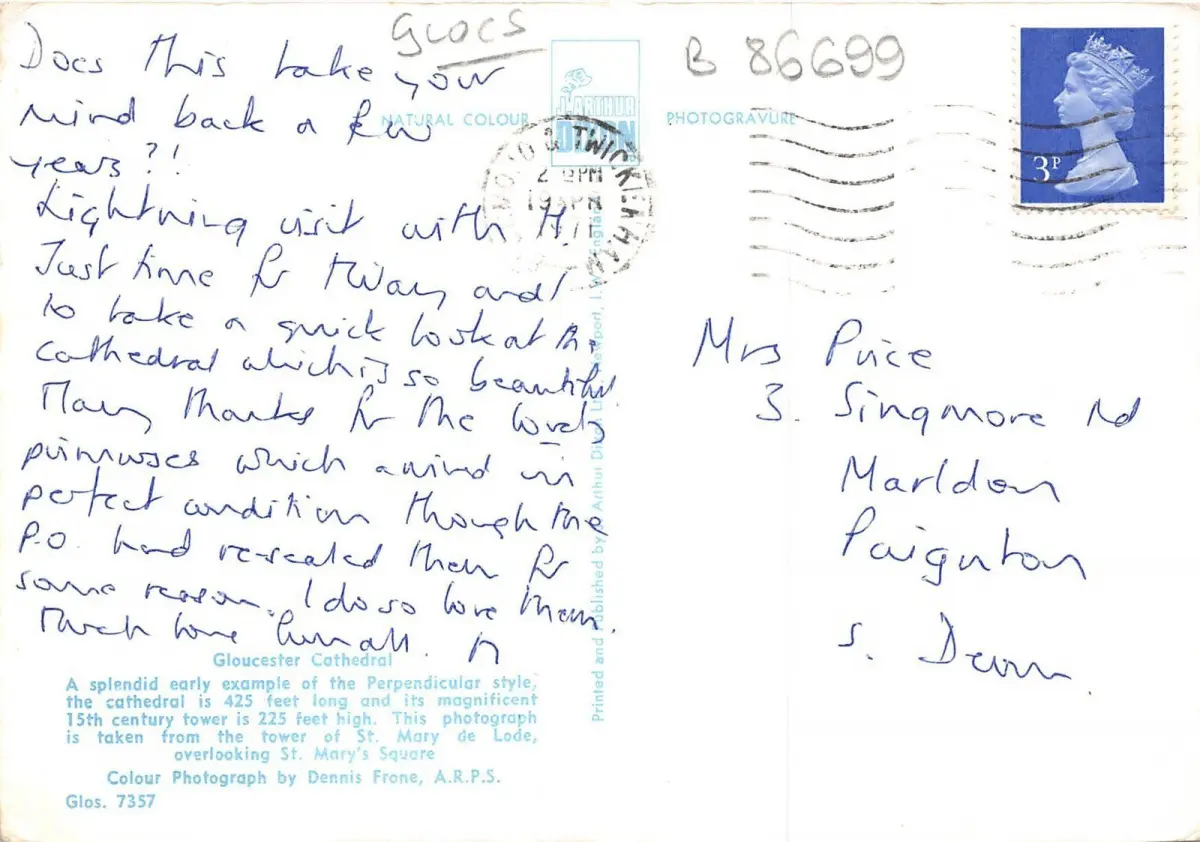 GLOCS
B 86699
Does this take your
mind back a few
years?!
Lightning visit with H.
Just time for Hilary and I
to take a quick look at the
cathedral which is so beautiful.
Many thanks for the lovely
primroses which arrived in
perfect condition though the
P.O. had re-sealed them for
some reason. I do so love them.
Much love from all.
NATURAL COLOUR
J. ARTHUR
DIXON
PHOTOGRAVURE
& TWICKENHAM
PM
19 APR
1971
3P
Mrs Price
3. Singmore Rd
Marldon
Paignton
S. Devon
Printed and Published by J. Arthur Dixon Ltd., Newport, I.W., England
Gloucester Cathedral
A splendid early example of the Perpendicular style,
the cathedral is 425 feet long and its magnificent
15th century tower is 225 feet high. This photograph
is taken from the tower of St. Mary de Lode,
overlooking St. Mary's Square
Colour Photograph by Dennis Frone, A.R.P.S.
Glos. 7357